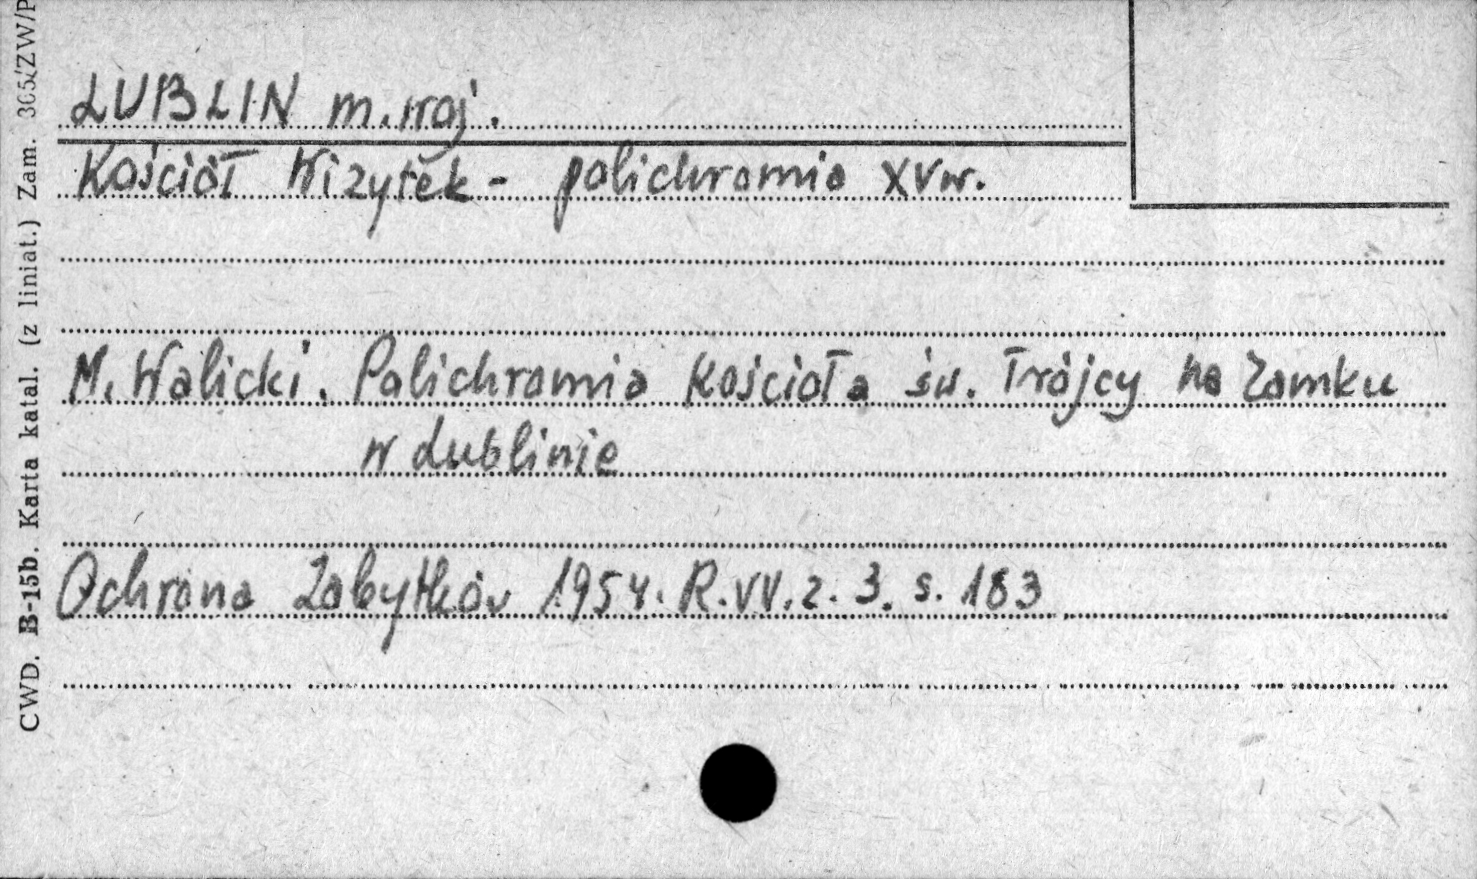 LUBLIN m. woj.
Kościół Wizytek - polichromia XV w.
M. Walicki. Polichromia Kościoła św. Trójcy na Zamku
w Lublinie
Ochrona Zabytków 1954. R. VV. z. 3. s. 183
CWD. B-15b. Karta katal. (z liniat.) Zam. 305/ZW/P